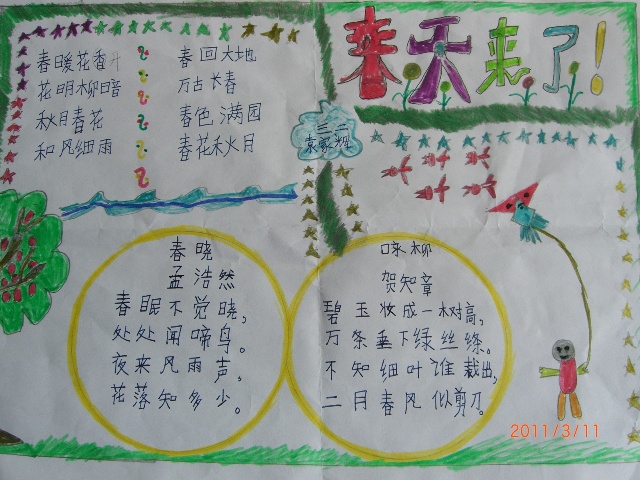 春天来了！
春暖花香
花明柳暗
秋月春花
和风细雨
春回大地
万古长春
春色满园
春花秋月
三二
袁家辉
春晓
孟浩然
春眠不觉晓，
处处闻啼鸟。
夜来风雨声，
花落知多少。
咏柳
贺知章
碧玉妆成一树高，
万条垂下绿丝绦。
不知细叶谁裁出，
二月春风似剪刀。
2011/3/11